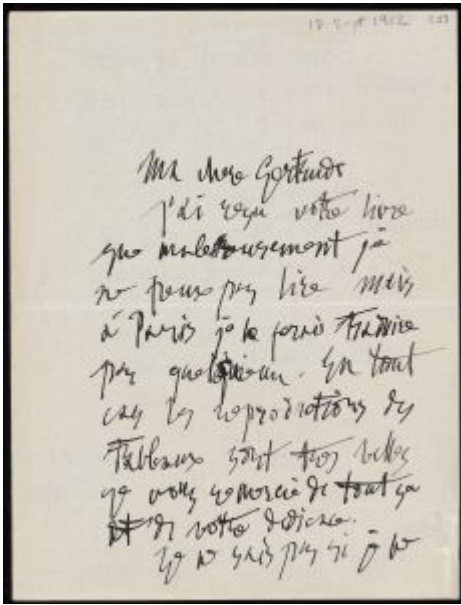 18 Sept 1912
Ma chere Gertrude
j'ai reçu votre livre
que maleurousement je
ne peux pas lire mais
à Paris je le ferais traduire
par quelqu'un. En tout
cas les reproductions des
Tableaux sont tres belles
je vous remercie de tout ça
et de votre dedicace.
Je ne sais pas si je ne